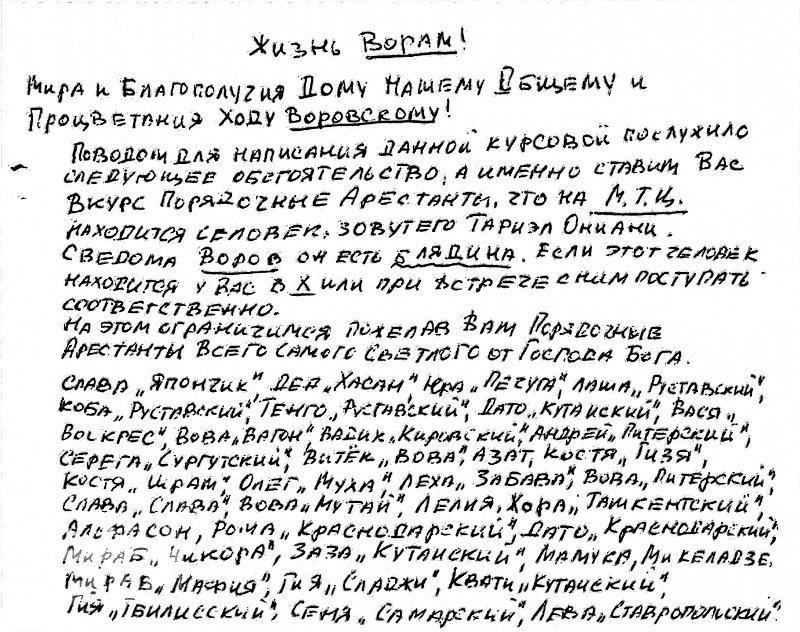 Жизнь Ворам!
Мира и Благополучия Дому Нашему Общему и
Процветания Ходу Воровскому!
Поводом для написания данной курсовой послужило
следующее обстоятельство, а именно ставим Вас
вкурс Порядочные Арестанты, что на М.Т.Ц.
находится селовек, зовутего Тариэл Ониани.
Сведома Воров он есть блядина. Если этот человек
находится у Вас в Х или при встрече с ним поступать
соответственно.
На этом ограничимся пожелав Вам Порядочные
Арестанты Всего Самого Светлого от Господа Бога.
Слава „Япончик", Дед „Хасан", Юра „Пичуга", Лаша „Руставский",
Коба „Руставский", Тенго „Руставский", Дато „Кутаиский", Вася „
Воскрес", Вова „Вагон" Вадик „Кировский", Андрей „Питерский",
Серега „Сургутский", Витёк „Вова", Азат, Костя „Гизя",
Костя „Шрам", Олег „Муха", Леха „Забава", Вова „Питерский",
Слава „Слава", Вова „Мутай", Лелия, Хора „Ташкентский",
Альфасон, Рома „Краснодарский", Дато „Краснодарский",
Мираб „Чикора", Заза „Кутаиский", Мамука, Микеладзе,
Мираб „Мафия", Гия „Сладжи", Квати „Кутаиский",
Гия „Тбилисский", Сеня „Самарский", Лева „Ставропольский".